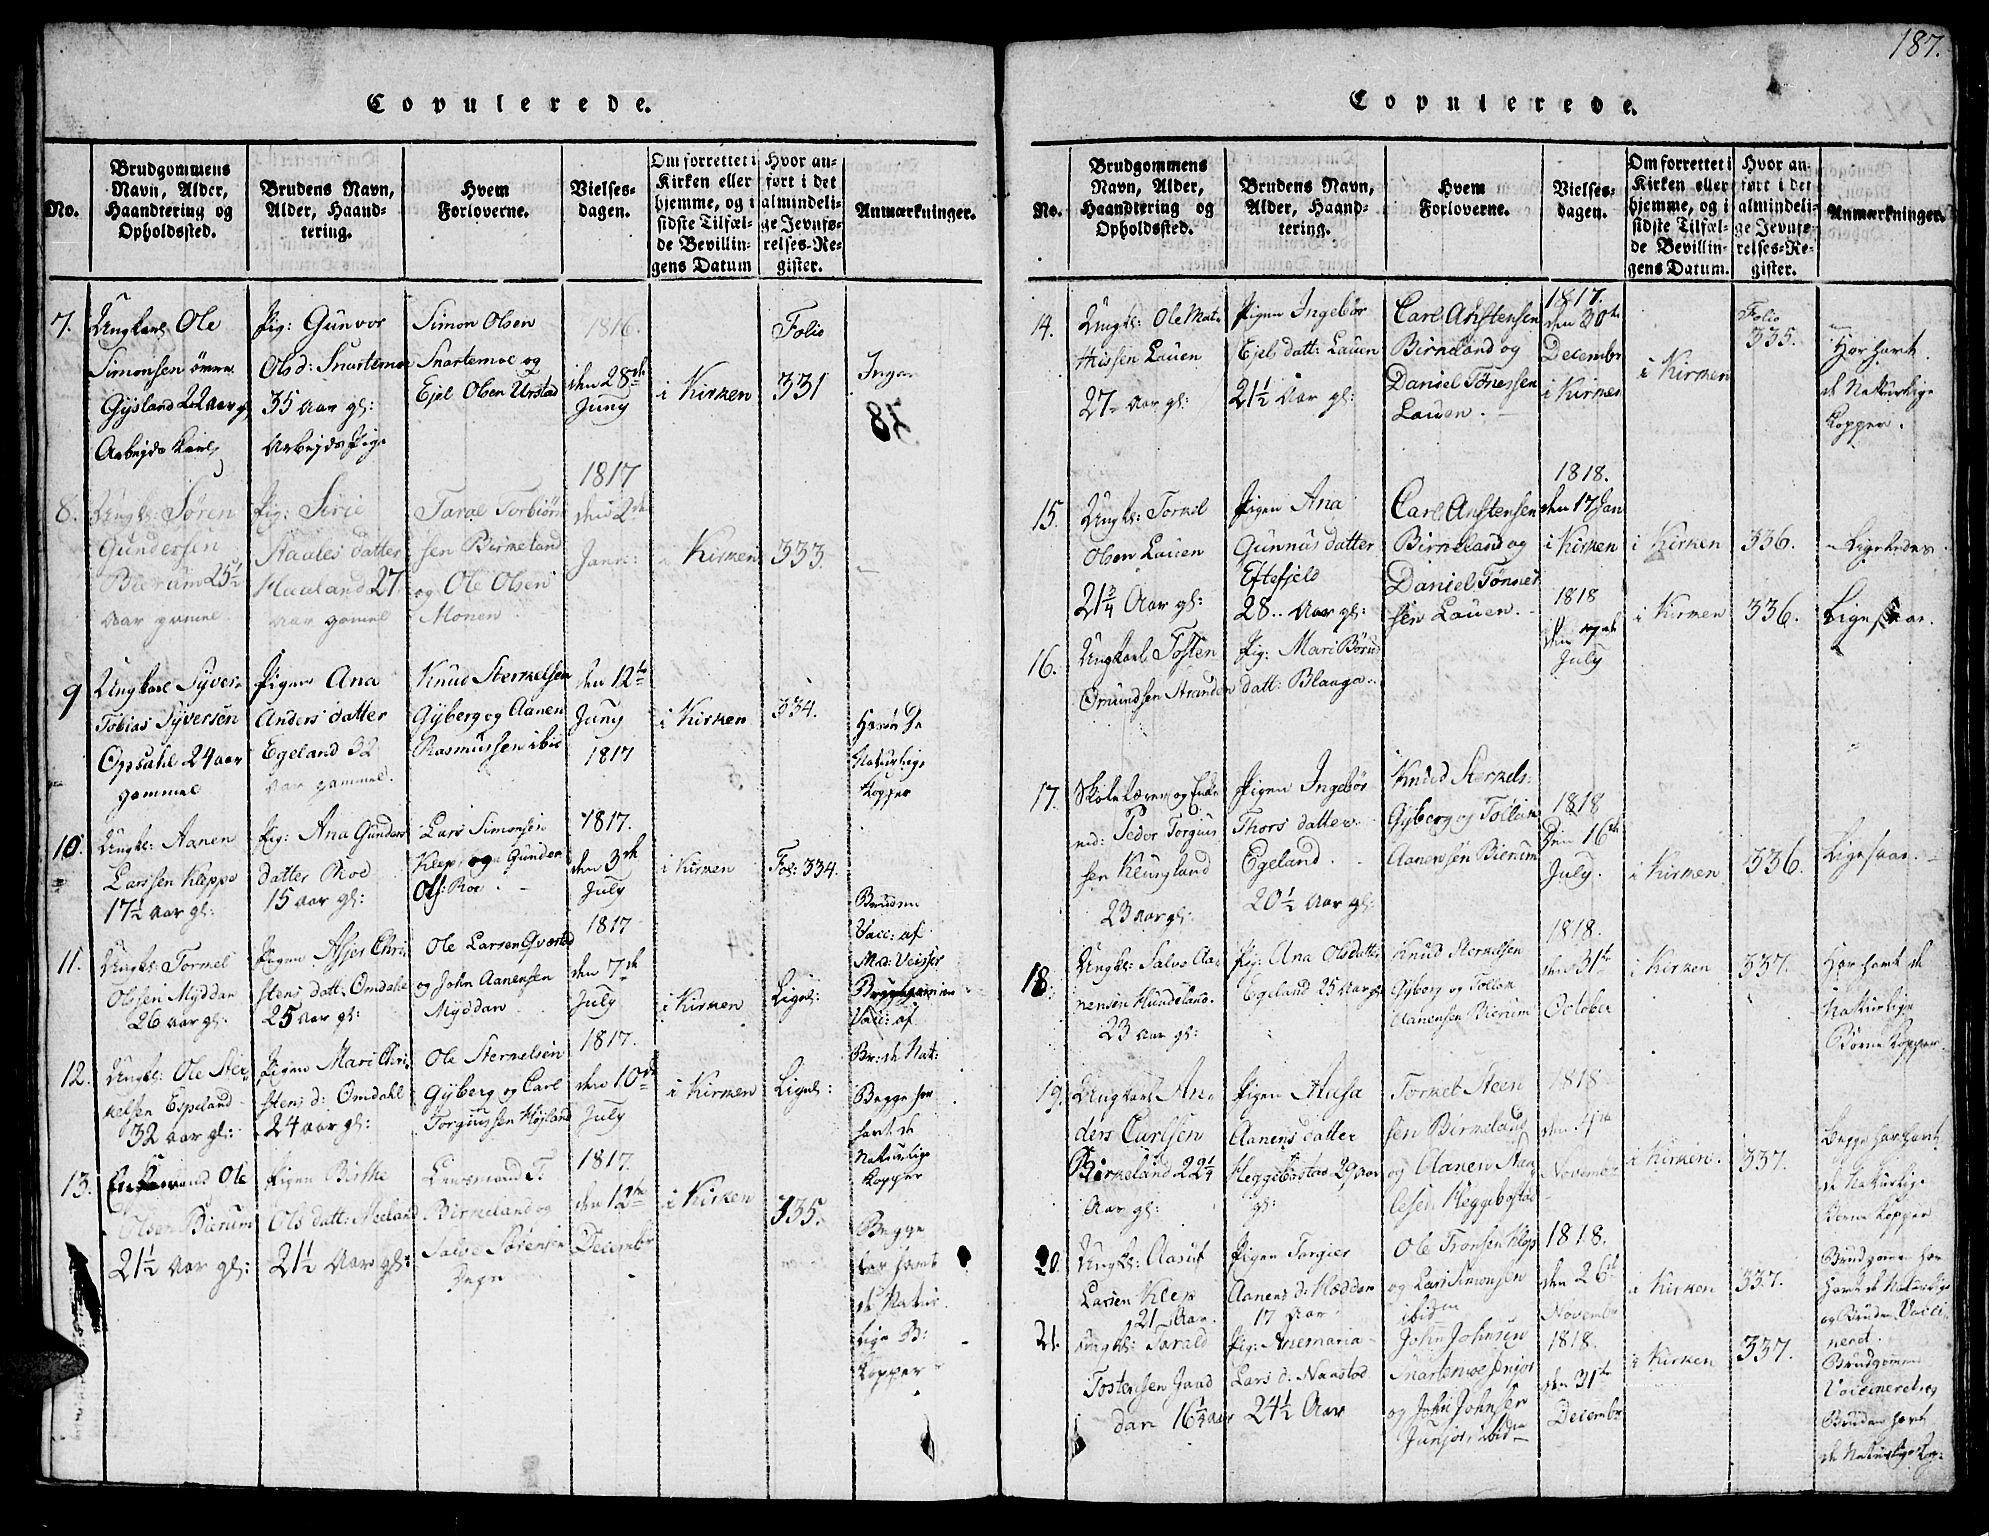 187.
Copulerede.
No.
Brudgommens Navn, Alder, Haandtering og Opholdssted.
Brudens Navn, Alder, Haandtering.
Hvem Forloverne.
Vielsesdagen.
Om forrettet i Kirken eller hjemme, og i sidste Tilfælde Bevillingens Datum
Hvor anført i det almindelige Jevnførelses-Register.
Anmærkninger.
7.
Ungkarl Ole
Simonsen
Gysland 22 aar gl
Arbejds Karl
Pig: Gunvor
Olsd: Snartemoe
35 Aar gl:
Arbejds Pige
Simon Olsen
Snartemoe og
Ejel Olsen Urstad
1816.
den 28de
Juny
i Kirken
Folio
331
Ingen
8.
Ungk: Søren
Gundersen
Bierum 25½
Aar gammel
Pig: Sirie
Staales datter
Haaland 27
Aar gammel
Taral Torbiørn
sen Birkeland
og Ole Olsen
Monen
1817
den 2de
Janr:
Kirken
333.
9
Ungkarl Syver
Tobias Syversen
Opsahl 24 aar
gammel
Pigen Ana
Anders datter
Egeland 32
Aar gammel.
Knud Sterkelsen
Gyberg og Aanen
Rasmussen ibid
den 12te
Juny
1817
i Kirken
334.
Naturlige
Kopper
10.
Ungk: Aanen
Larssen Kleppe
17½ Aar gl:
Pig: Ana Gunders
datter Roe
15 Aar gl:
Lars Simonsen
Klep og Gunder
Ols: Roe
1817.
den 3de
July
i Kirken
Fol: 334.
Bruden
Vacc: af
11.
Ungk: Tormel
Olssen Myddan
26 aar gl:
Pigen Asjer Chri
stens datt: Omdahl
25 Aar gl:
Ole Larsen Qvæstad
og John Aanensen
Myddan
1817
den 7de
July
i Kirken
Ligel:
Brudgommen
Vacc: af
Br: de Nat:
12.
Ungk: Ole Ster
kelsen Espeland
32 aar gl:
Pigen Mari Chri
stens d: Omdahl
24 aar gl:
Ole Sterkelsen
Gyberg og Carl
Torgiussen Højland
1817.
den 10de
July
i Kirken
Ligel:
Begge har
havt de
Naturlige
Kopper
13.
Ole
Olsen Bierum
21½ Aar gl:
Pigen Birthe
Ols datt: Aeeland
21½ Aar gl:
Lensmand T.
Birkeland og
Salve Sørensen
1817.
den 12te
Decembr
i Kirken
335.
Begge
har havt
de Natur
lige B:
Kopper
Copulerede.
No.
Brudgommens Navn, Alder, Haandtering og Opholdssted.
Brudens Navn, Alder, Haandtering.
Hvem Forloverne.
Vielsesdagen.
Om forrettet i Kirken eller hjemme, og i sidste Tilfælde Bevillingens Datum.
Hvor anført i det almindelige Jevnførelses-Register.
Anmærkninger.
14.
Ungk: Ole Mat
thissen Lauen
27 Aar gl:
Pigen Ingebør
Ejels datt: Lauen
21½ Aar gl:
Carl Anstensen
Birkeland og
Daniel Tønessen
Lauen.
1817.
den 30te
Decembr
i Kirken
i Kirken
Folio
335.
Har havt
de Naturlige
Kopper.
15.
Ungk: Tormel
Olsen Lauen
21¾ Aar gl:
Pigen Ana
Gunnus datter
Eftefjeld
28. Aar gl:
Carl Anstensen
Birkeland og
Daniel Tønnes
sen Lauen.
1818.
den 17 Jan
i Kirken
i Kirken
336.
Ligeledes
16.
Ungkarl Tosten
Omundsen Stranden
Pig: Mari Børud
datt: Blaaga
1818
July
i Kirken
336.
17.
Skolelærer og Enke
Peder Torgius
sen Klungland
23 Aar gl:
Pigen Ingebør
Thors datter
Egeland.
20½ Aar gl:
Knud Sterkels:
Gyberg og Tollon
Aanensen Bierum
1818
Den 16de
July.
i Kirken
336.
18.
Ungk: Salve Aa
nensen Hundeland.
23 Aar gl:
Pig: Ana Olsdatter
Egeland 25 Aar gl
Knud Sterkelsen
Gyberg og Tollon
Aanensen Bierum
1818.
den 31te
October
i Kirken
337.
Har havt de
Naturlige
Børne Kopper.
19.
Ungkarl An
ders Carlsen
Birkeland 22¼
Aar gl:
Pigen Aasa
Aanens datter
Heggebostad 29 Aar
gl:
Tormel Steen
sen Birkeland
og Aanen Staa
lesen Heggebostad
1818
Novembr
i Kirken.
337
Begge har havt
de Naturlige
Børne Kopper
20.
Ungk: Aasuf
Larsen Klep
21 Aar.
Pigen Torgier
Aanens d: Hæddan
17 Aar
Ole Tronsen Klep
og Lars Simonsen
ibid
1818.
den 26de
Novembr
i Kirken
337.
Brudgomen har
havt de Naturlige
og Bruden Vacci
neret.
21.
Ungk: Tarald
Tostensen Jaad
dan 16½ aar
Pig: Anemaria
Lars d: Naastad
24½ Aar
John Johnsen
Snartemoe Senjor
og John Johnsen
Junjor, ibid
1818.
den 31te
Decembr
i Kirken
337.
Brudgomen
Vaccineret, og
Bruden havt
de Naturlige Kop: